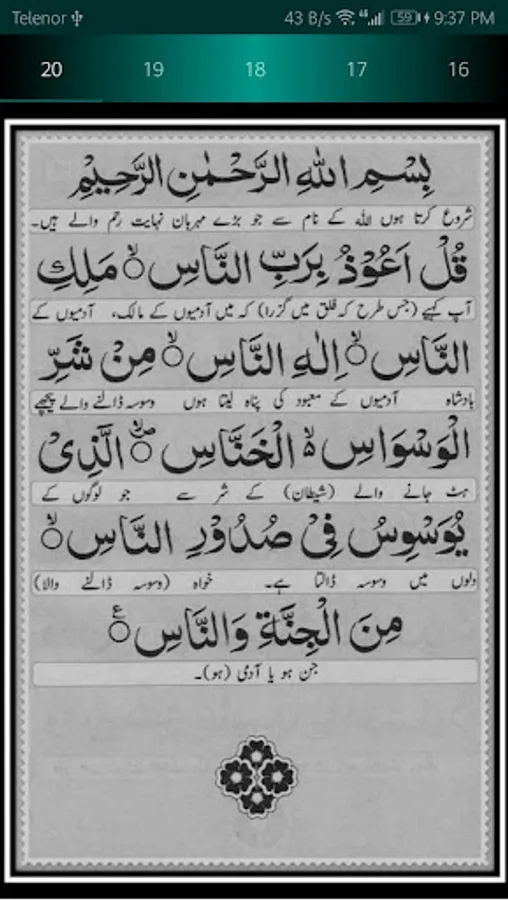 Telenor 43 B/s 4G 59 9:37 PM
20 19 18 17 16
بِسْمِ اللهِ الرَّحْمٰنِ الرَّحِيْمِ
شروع کرتا ہوں اللہ کے نام سے جو بڑے مہربان نہایت رحم والے ہیں۔
قُلْ اَعُوْذُ بِرَبِّ النَّاسِ ۙ مَلِكِ
آپ کہیے (جس طرح کہ فلق میں گزرا) کہ میں آدمیوں کے مالک، آدمیوں کے
النَّاسِ ۙ اِلٰهِ النَّاسِ ۙ مِنْ شَرِّ
بادشاہ آدمیوں کے معبود کی پناہ لیتا ہوں وسوسہ ڈالنے والے پیچھے
الْوَسْوَاسِ ۙ الْخَنَّاسِ ۙ الَّذِيْ
ہٹ جانے والے (شیطان) کے شر سے جو لوگوں کے
يُوَسْوِسُ فِيْ صُدُوْرِ النَّاسِ ۙ
دلوں میں وسوسہ ڈالتا ہے۔ خواہ (وسوسہ ڈالنے والا)
مِنَ الْجِنَّةِ وَالنَّاسِ ع
جن ہو یا آدمی (ہو)۔